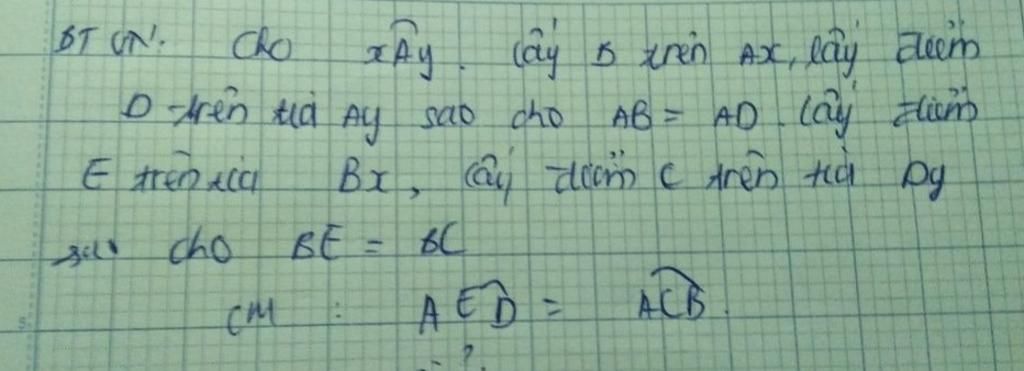 BT VN: Cho xÂy. Lấy B trên Ax, lấy điểm
D trên tia Ay sao cho AB = AD. Lấy điểm
E trên tia Bx, lấy điểm C trên tia Dy
sao cho BE = BC
CM : AÊD = AĈB.
?